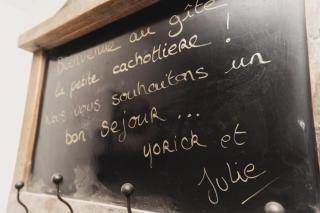 Bienvenue au gîte
La petite cachottière !
Nous vous souhaitons un
bon séjour ...
Yorick et
Julie